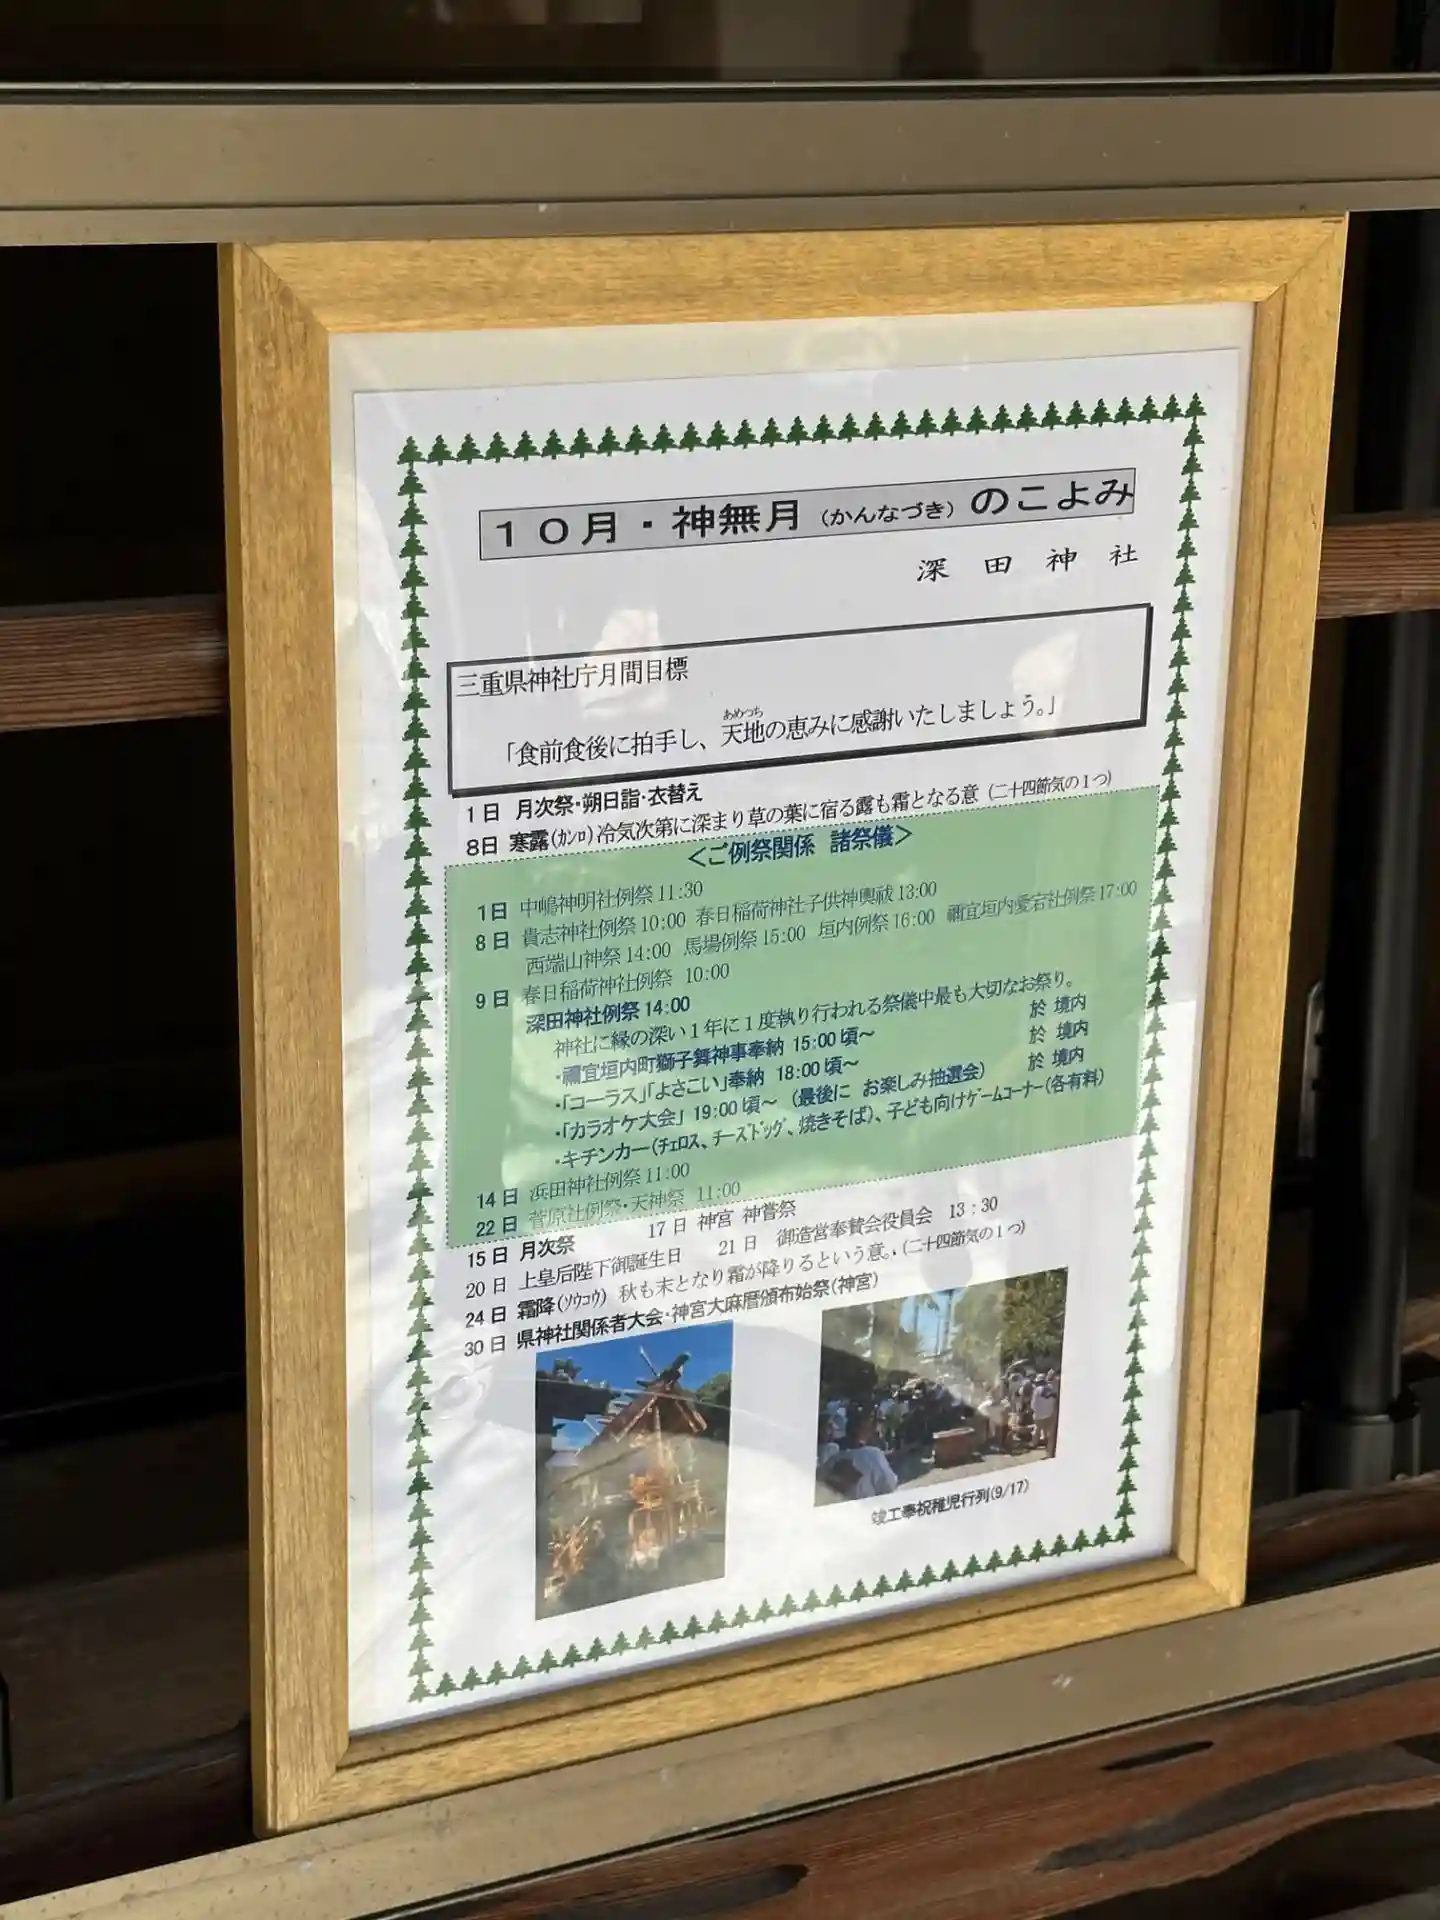 10月・神無月（かんなづき）のこよみ
深田神社
三重県神社庁月間目標
「食前食後に拍手し、天地の恵みに感謝いたしましょう。」
あめつち
1日 月次祭・朔日詣・衣替え
8日 寒露（ｶﾝﾛ）冷気次第に深まり草の葉に宿る露も霜となる意（二十四節気の１つ）
＜ご例祭関係 諸祭儀＞
1日 中嶋神明社例祭 11:30
8日 貴志神社例祭 10:00 春日稲荷神社子供神輿祓 13:00
西端山神祭 14:00 馬場例祭 15:00 垣内例祭 16:00 禰宜垣内愛宕社例祭 17:00
9日 春日稲荷神社例祭 10:00
深田神社例祭 14:00
神社に縁の深い１年に１度執り行われる祭儀中最も大切なお祭り。
・禰宜垣内町獅子舞神事奉納 15:00頃～ 於 境内
・「コーラス」「よさこい」奉納 18:00頃～ 於 境内
・「カラオケ大会」 19:00頃～（最後に お楽しみ抽選会） 於 境内
・キチンカー（ﾁｪﾛｽ、ﾁｰｽﾞﾄﾞｯｸﾞ、焼きそば）、子ども向けｹﾞｰﾑｺｰﾅｰ（各有料）
14日 浜田神社例祭 11:00
22日 菅原社例祭・天神祭 11:00
15日 月次祭 17日 神宮 神嘗祭
20日 上皇后陛下御誕生日 21日 御造営奉賛会役員会 13：30
24日 霜降（ｿｳｺｳ） 秋も末となり霜が降りるという意。．（二十四節気の１つ）
30日 県神社関係者大会・神宮大麻暦頒布始祭（神宮）
竣工奉祝稚児行列（9/17）